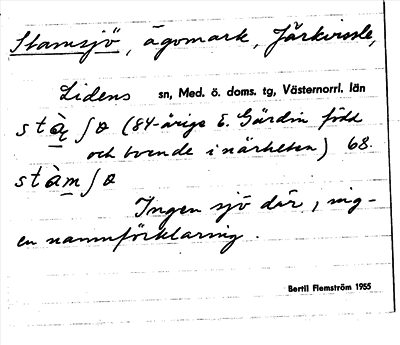 Stamsjö, ägomark, Järkvissle,
Lidens sn, Med. ö. doms. tg, Västernorrl. län
(84-årige E. Gärdin född
och boende i närheten) 68.
stàmʃɵ
Ingen sjö där, ing-
en namnförklaring.
Bertil Flemström 1955